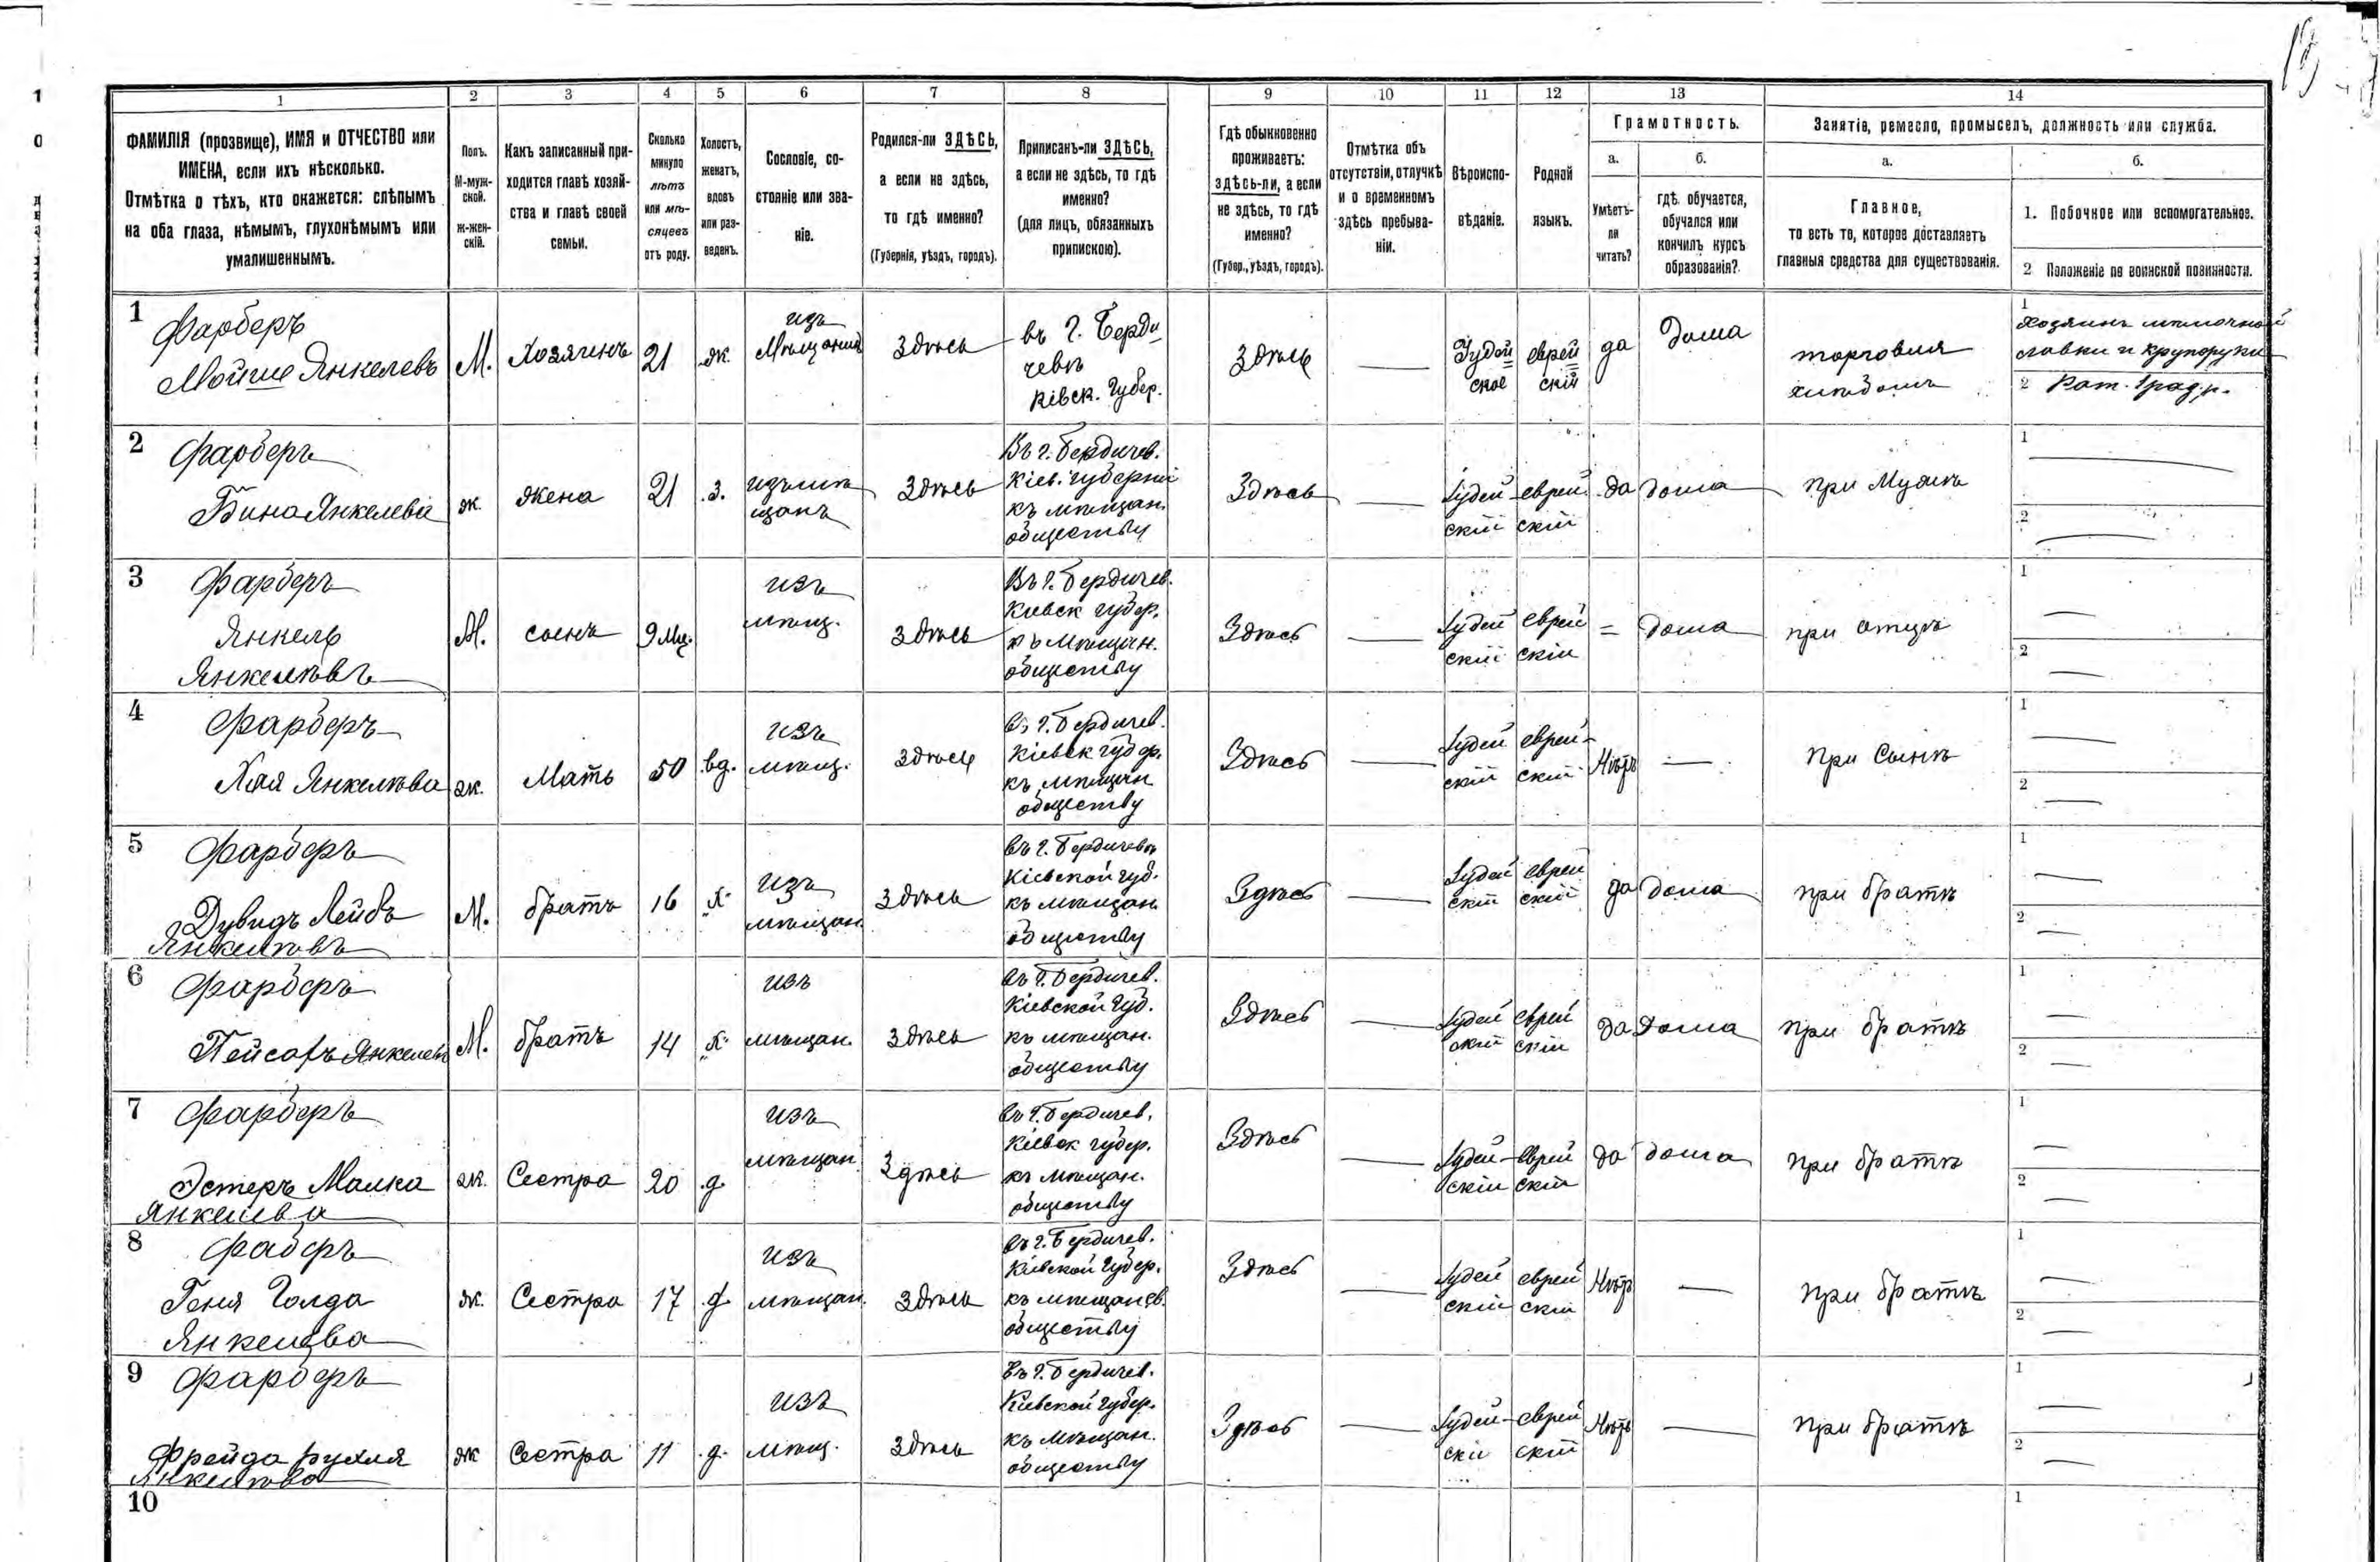 1 2 3 4 5 6 7 8 9 10 11 12 13 14
ФАМИЛІЯ (прозвище), ИМЯ и ОТЧЕСТВО или
ИМЕНА, если ихъ нѣсколько.
Отмѣтка о тѣхъ, кто окажется: слѣпымъ
на оба глаза, нѣмымъ, глухонѣмымъ или
умалишеннымъ.
Полъ.
М-муж-
ской.
ж-жен-
скій.
Какъ записанный при-
ходится главѣ хозяй-
ства и главѣ своей
семьи.
Сколько
минуло
лѣтъ
или мѣ-
сяцевъ
отъ роду.
Холостъ,
женатъ,
вдовъ
или раз-
веденъ.
Сословіе, со-
стояніе или зва-
ніе.
Родился-ли ЗДѢСЬ,
а если не здѣсь,
то гдѣ именно?
(Губернія, уѣздъ, городъ).
Приписанъ-ли ЗДѢСЬ,
а если не здѣсь, то гдѣ
именно?
(для лицъ, обязанныхъ
припискою).
Гдѣ обыкновенно
проживаетъ:
здѣсь-ли, а если
не здѣсь, то гдѣ
именно?
(Губер., уѣздъ, городъ).
Отмѣтка объ
отсутствіи, отлучкѣ
и о временномъ
здѣсь пребыва-
ніи.
Вѣроиспо-
вѣданіе.
Родной
языкъ.
Грамотность.
а.
Умѣетъ-
ли
читать?
б.
гдѣ обучается,
обучался или
кончилъ курсъ
образованія?
Занятіе, ремесло, промыселъ, должность или служба.
а.
Главное,
то есть то, которое доставляетъ
главныя средства для существованія.
б.
1. Побочное или вспомогательное.
2 Положеніе по воинской повинности.
1
Фарберъ
Мойше Янкелевъ
М.
Хозяинъ
21
ж.
изъ
Мѣщанъ
Здѣсь
въ г. Берди
чевѣ
Кіевск. Губер.
Здѣсь
Іудей
ское
еврей
скій
да
Дома
торговля
хлѣбомъ
1
Хозяинъ мелочной
лавки и
2
2
Фарберъ
Бина Янкелева
ж.
жена
21
з.
изъ мѣ
щанъ
Здѣсь
Въ г. Бердичев.
Кіев. губерніи
къ мѣщан.
обществу
Здѣсь
Іудей
скій
еврей
скій
да
дома
при Мужѣ
1
2
3
Фарберъ
Янкель
Янкелевъ
М.
сынъ
9 Мц.
изъ
мѣщ.
здѣсь
Въ г. Бердичев.
Кіевск губер.
къ мѣщан.
обществу
Здѣсь
Іудей
скій
еврей
скій
дома
при отцѣ
1
2
4
Фарберъ
Хая Янкелева
ж.
Мать
50
вд.
изъ
мѣщ.
здѣсь
въ г. Бердичев.
Кіевск губер.
къ мѣщан
обществу
Здѣсь
Іудей
скій
еврей-
скій
Нѣтъ
При Сынѣ
1
2
5
Фарберъ
Дувидъ Лейбъ
Янкелевъ
М.
братъ
16
х.
изъ
мѣщан.
Здѣсь
въ г. Бердичевѣ
Кіевской губ.
къ мѣщан.
обществу
Здѣсь
Іудей
скій
еврей
скій
да
дома
при братѣ
1
2
6
Фарберъ
Пейсахъ Янкелевъ
М.
братъ
14
х.
изъ
мѣщан.
Здѣсь
въ г. Бердичев.
Кіевской губ.
къ мѣщан.
обществу
Здѣсь
Іудей
скій
еврей
скій
да
дома
при братѣ
1
2
7
Фарберъ
Эстеръ Малка
Янкелева
ж.
Сестра
20
д.
изъ
мѣщан
Здѣсь
въ г. Бердичев.
Кіевск губер.
къ мѣщан.
обществу
Здѣсь
Іудей
скій
еврей
скій
да
дома
при братѣ
1
2
8
Фаберъ
Геня Голда
Янкелева
ж.
Сестра
17
д.
изъ
мѣщан.
здѣсь
въ г. Бердичев.
Кіевской губер.
къ мѣщанев.
обществу
Здѣсь
Іудей
скій
еврей
скій
Нѣтъ
при братѣ
1
2
9
Фарберъ
Фрейда рухля
Янкелева
ж
Сестра
11
д.
изъ
мѣщ.
здѣсь
Въ г. Бердичев.
Кіевской губер.
къ мѣщан.
обществу
Здѣсь
Іудей
скій
еврей
скій
Нѣтъ
при братѣ
1
2
10
1